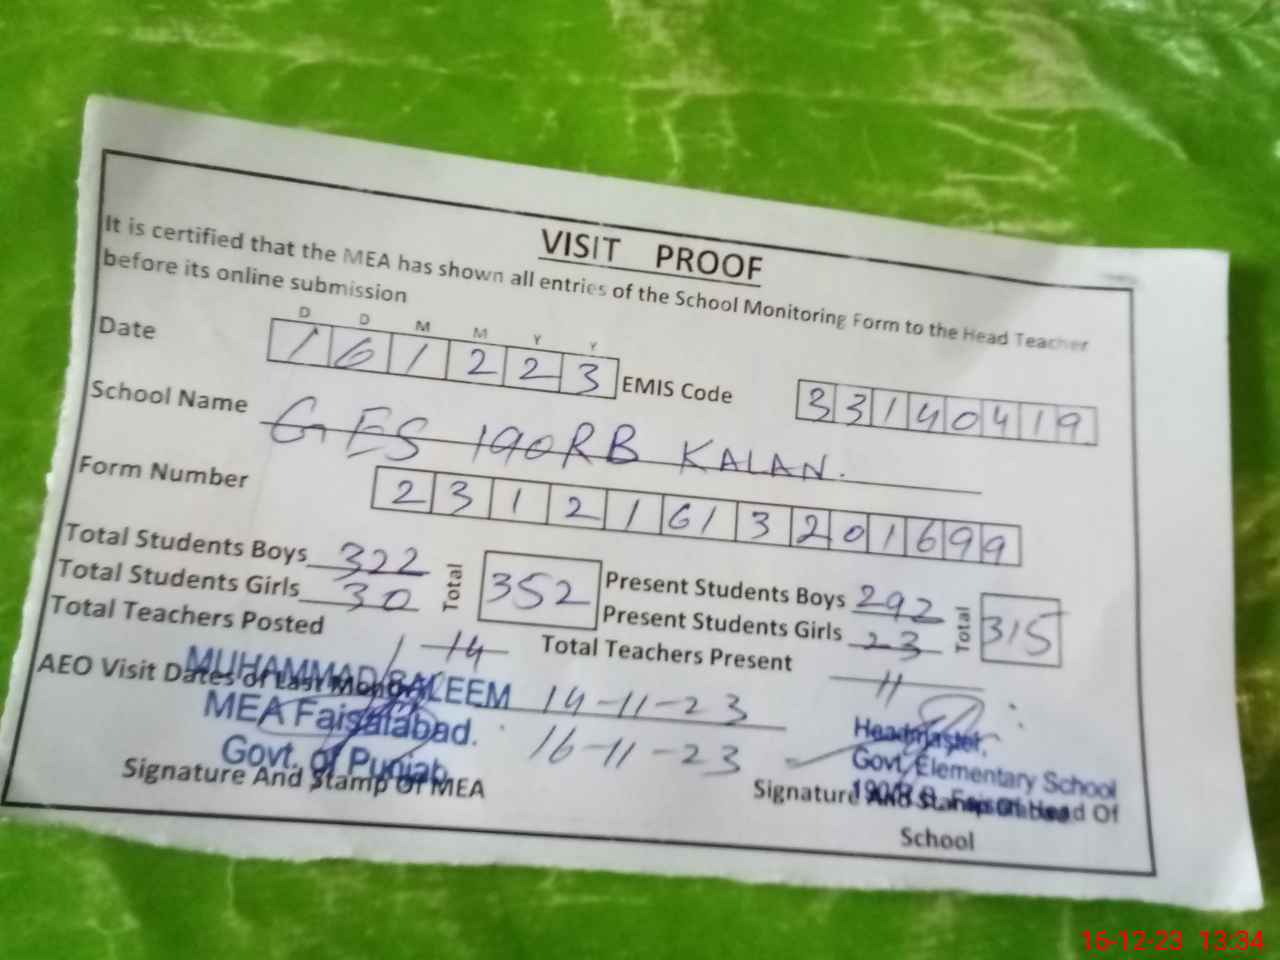 VISIT PROOF
It is certified that the MEA has shown all entries of the School Monitoring Form to the Head Teacher
before its online submission
D D M M Y Y
Date 1 6 1 2 2 3 EMIS Code 3 3 1 4 0 4 1 9
School Name GES 190RB KALAN.
Form Number 2 3 1 2 1 6 1 3 2 0 1 6 9 9
Total Students Boys 322 Total 352 Present Students Boys 292 Total 315
Total Students Girls 30 Present Students Girls 23
Total Teachers Posted 14 Total Teachers Present 11
AEO Visit Dates of Last Month 14-11-23
16-11-23
MUHAMMAD SALEEM
MEA Faisalabad.
Govt. of Punjab
Signature And Stamp Of MEA
Headmaster,
Govt. Elementary School
190/R.B. Faisalabad
Signature And Stamp Of Head Of
School
16-12-23 13:34